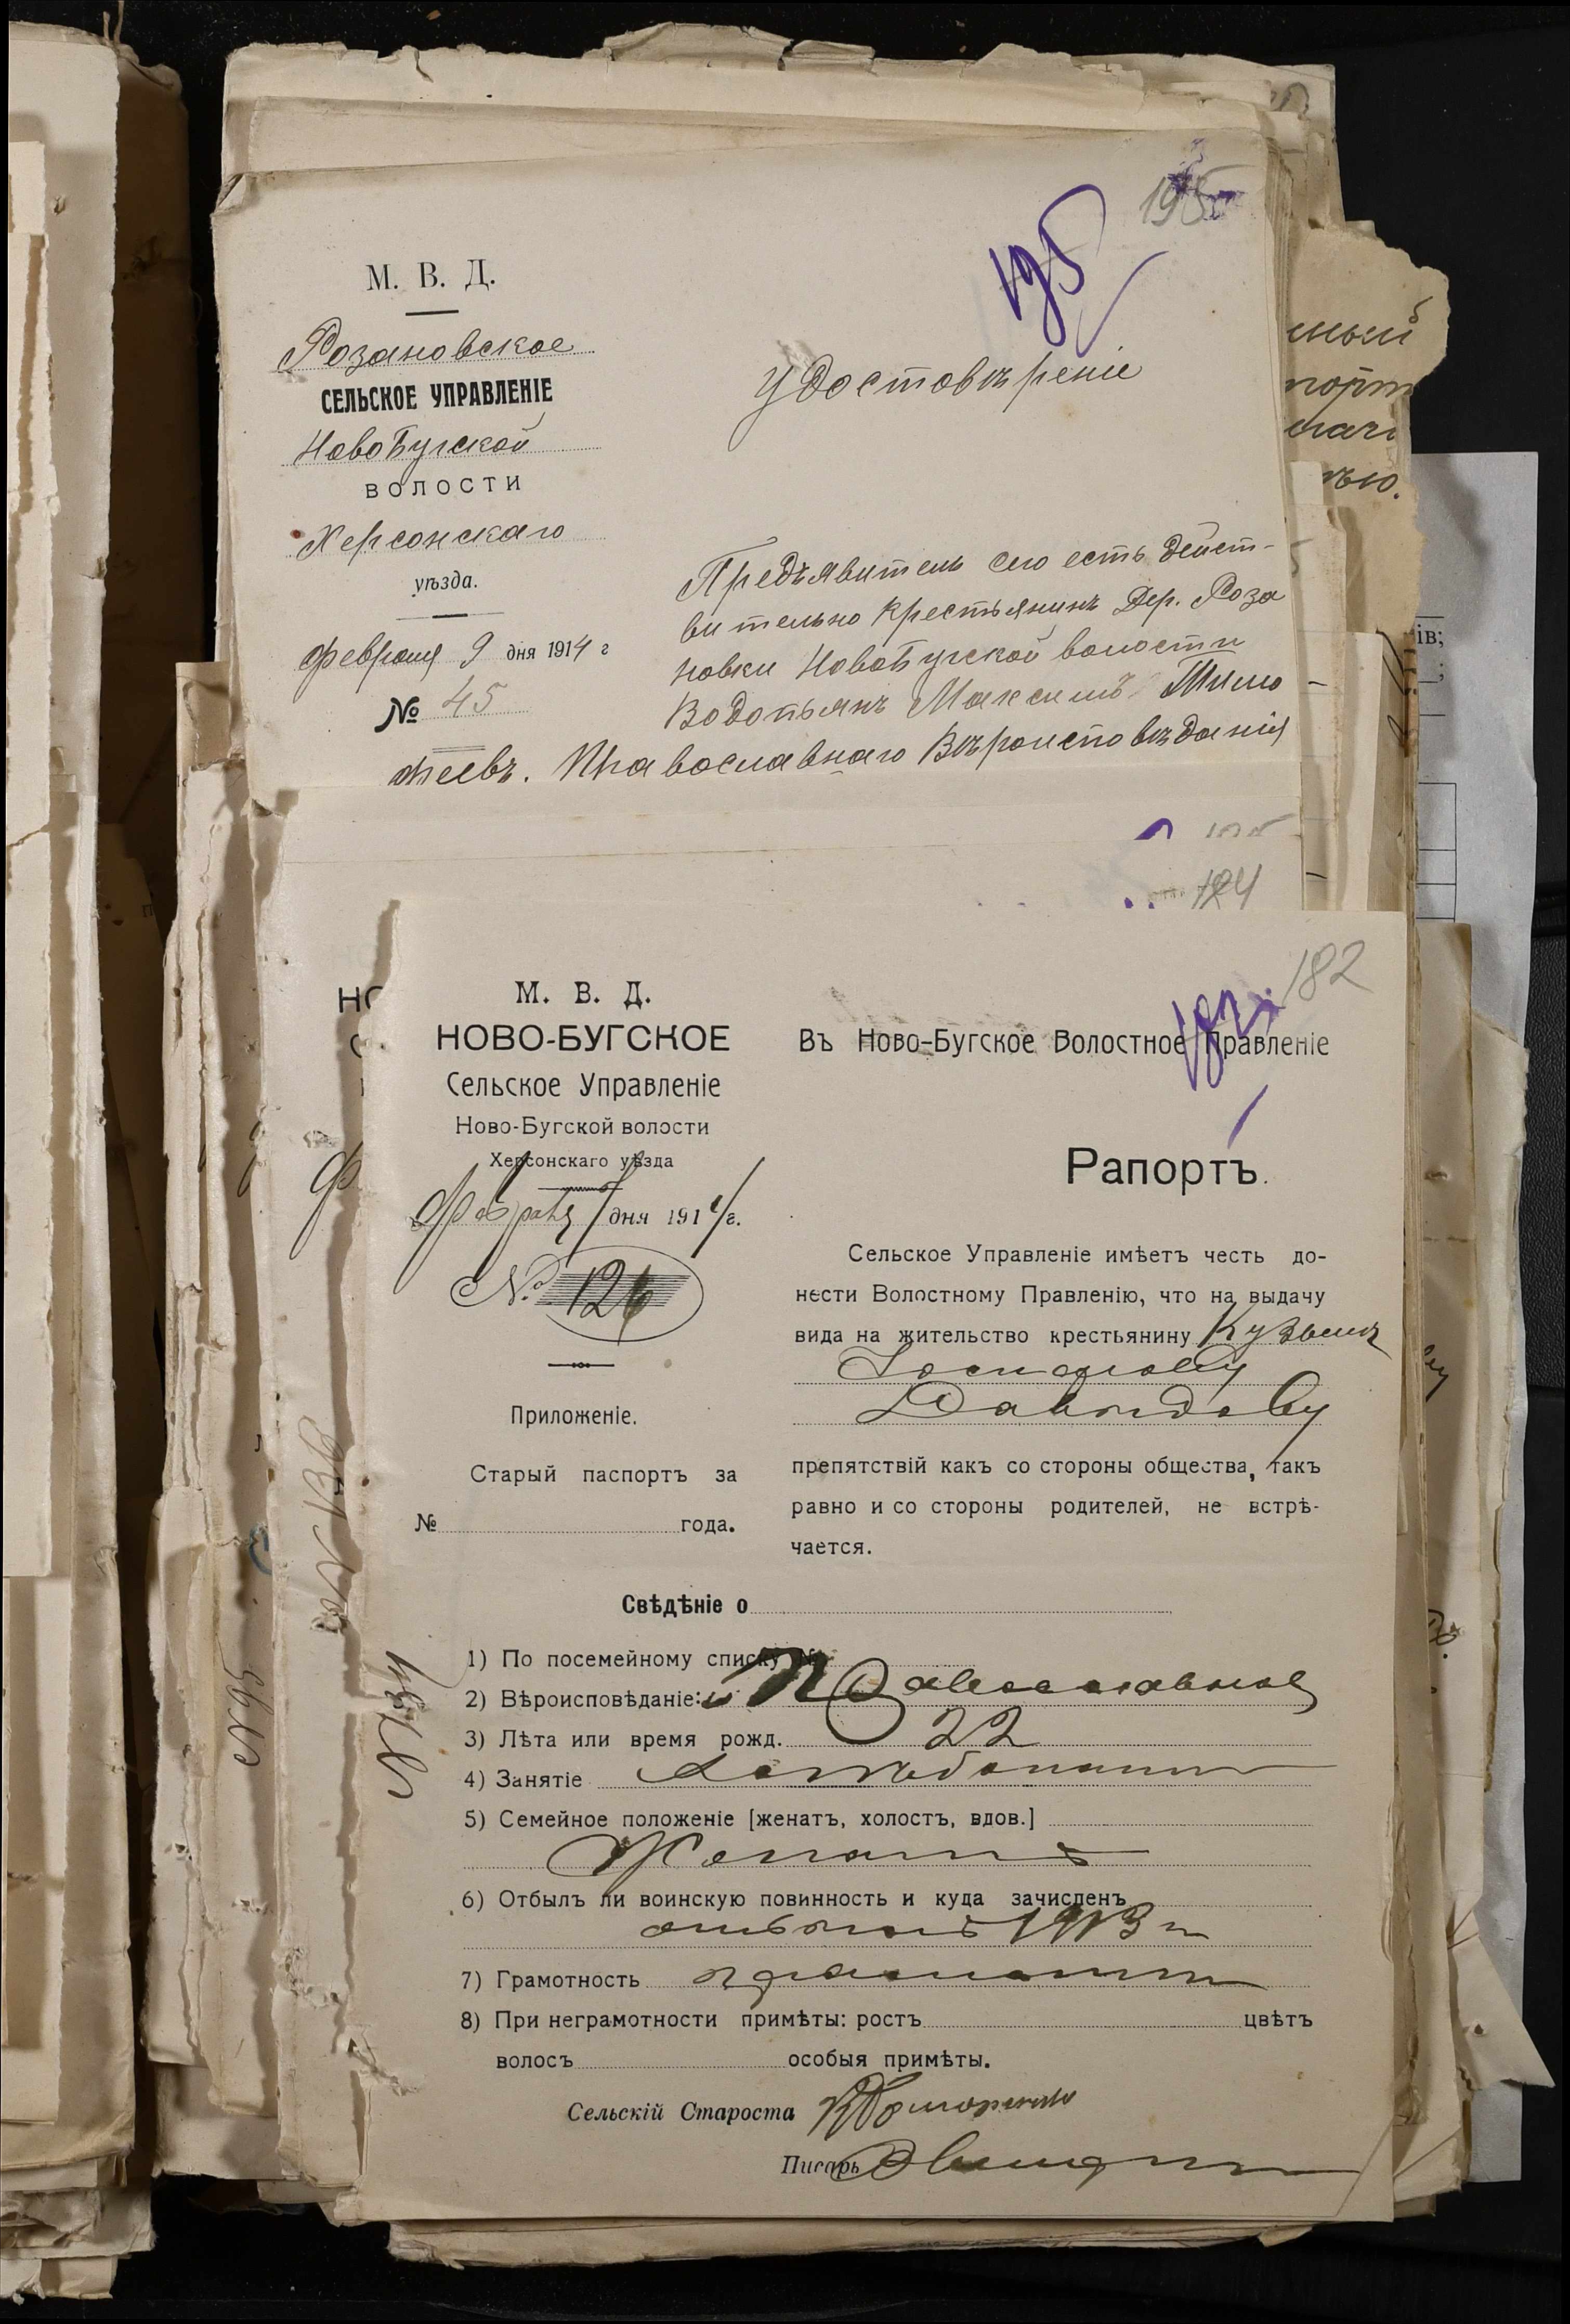 195
195
М. В. Д.
Розановское
СЕЛЬСКОЕ УПРАВЛЕНІЕ
НовоБугской
ВОЛОСТИ
Херсонскаго
уѣзда.
Февраля 9 дня 1914 г
№ 45
Удостовѣреніе
Предъявитель сего есть дѣйст-
вительно крестьянинъ Дер. Роза
новки НовоБугской волости
Водопьянъ Максимъ Тимо
феевъ. Православнаго Вѣроисповѣданія
184
182
182
М. В. Д.
НОВО-БУГСКОЕ
Сельское Управленіе
Ново-Бугской волости
Херсонскаго уѣзда
Февраля 7 дня 1914 г.
№ 126
Приложеніе.
Старый паспортъ за
№ года.
Въ Ново-Бугское Волостное Правленіе
Рапортъ.
Сельское Управленіе имѣетъ честь до-
нести Волостному Правленію, что на выдачу
вида на жительство крестьянину Кузьмѣ
Давыдову
препятствій какъ со стороны общества, такъ
равно и со стороны родителей, не встрѣ-
чается.
Свѣдѣніе о
1) По посемейному списку №
2) Вѣроисповѣданіе: Православное
3) Лѣта или время рожд. 22
4) Занятіе хлѣбопаш
5) Семейное положеніе [женатъ, холостъ, вдов.]
Женатъ
6) Отбылъ ли воинскую повинность и куда зачисленъ
отбылъ 1913 г
7) Грамотность грамотн
8) При неграмотности примѣты: ростъ цвѣтъ
волосъ особыя примѣты.
Сельскій Староста
Писарь
№ 95